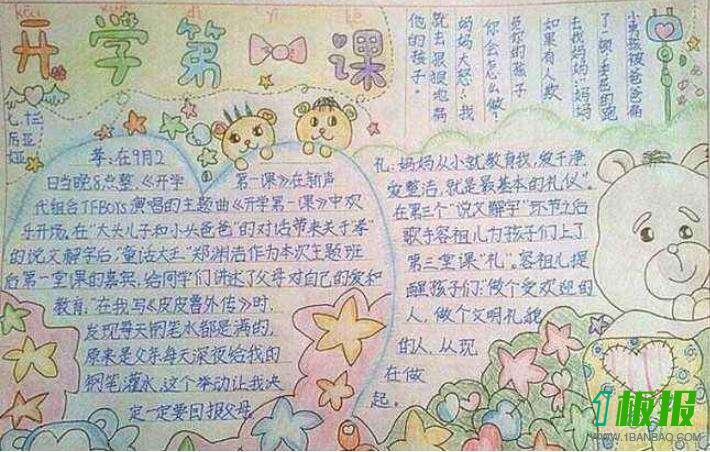 kāi xué dì yī kè
开学第一课
七
后亚娅
小男孩被爸爸痛
了一顿,委屈的跑
去找妈妈:“妈妈
如果有人欺
负你的孩子
你会怎么做?”
妈妈大怒:“我
就去狠狠地揍
他的孩子。”
孝:在9月2
日当晚8点整,《开学 第一课》在新声
代组合TFBOYS演唱的主题曲《开学第一课》中欢
乐开场,在“大头儿子和小头爸爸”的对话带来关于孝”
的说文解字后,“童话大王”郑渊洁作为本次主题班
后第一堂课的嘉宾,给同学们讲述了父母对自己的爱和
教育,“在我写《皮皮鲁外传》时,
发现每天钢笔水都是满的,
原来是父亲每天深夜给我的
钢笔灌水,这个举动让我决
定一定要回报父母。
礼:妈妈从小就教育我,爱干净
爱整洁,就是最基本的礼仪”。
在第三个“说文解字”环节之后
歌手容祖儿为孩子们上了
第三堂课“礼”。容祖儿提
醒孩子们:“做个受欢迎的
人,做个文明礼貌
的人,从现
在做
起。
1板报
WWW.1BANBAO.COM